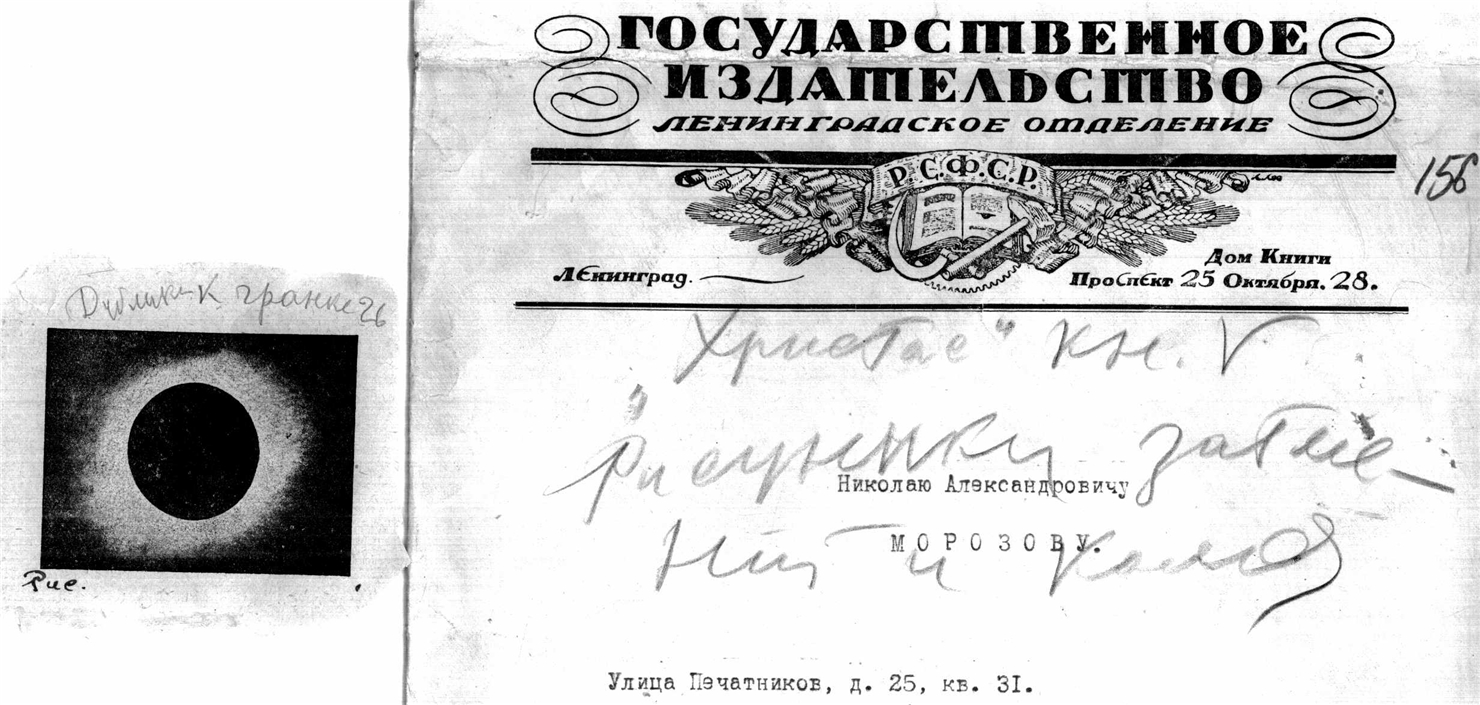 Дублик. К гранке 26
Рис.
ГОСУДАРСТВЕННОЕ
ИЗДАТЕЛЬСТВО
ЛЕНИНГРАДСКОЕ ОТДЕЛЕНИЕ
Р.С.Ф.С.Р.
156
Ленинград.
Дом Книги
Проспект 25 Октября. 28.
Христос" кн. V
"Рисунки затме-
Николаю Александровичу
ний и
МОРОЗОВУ.
Улица Печатников, д. 25, кв. 31.